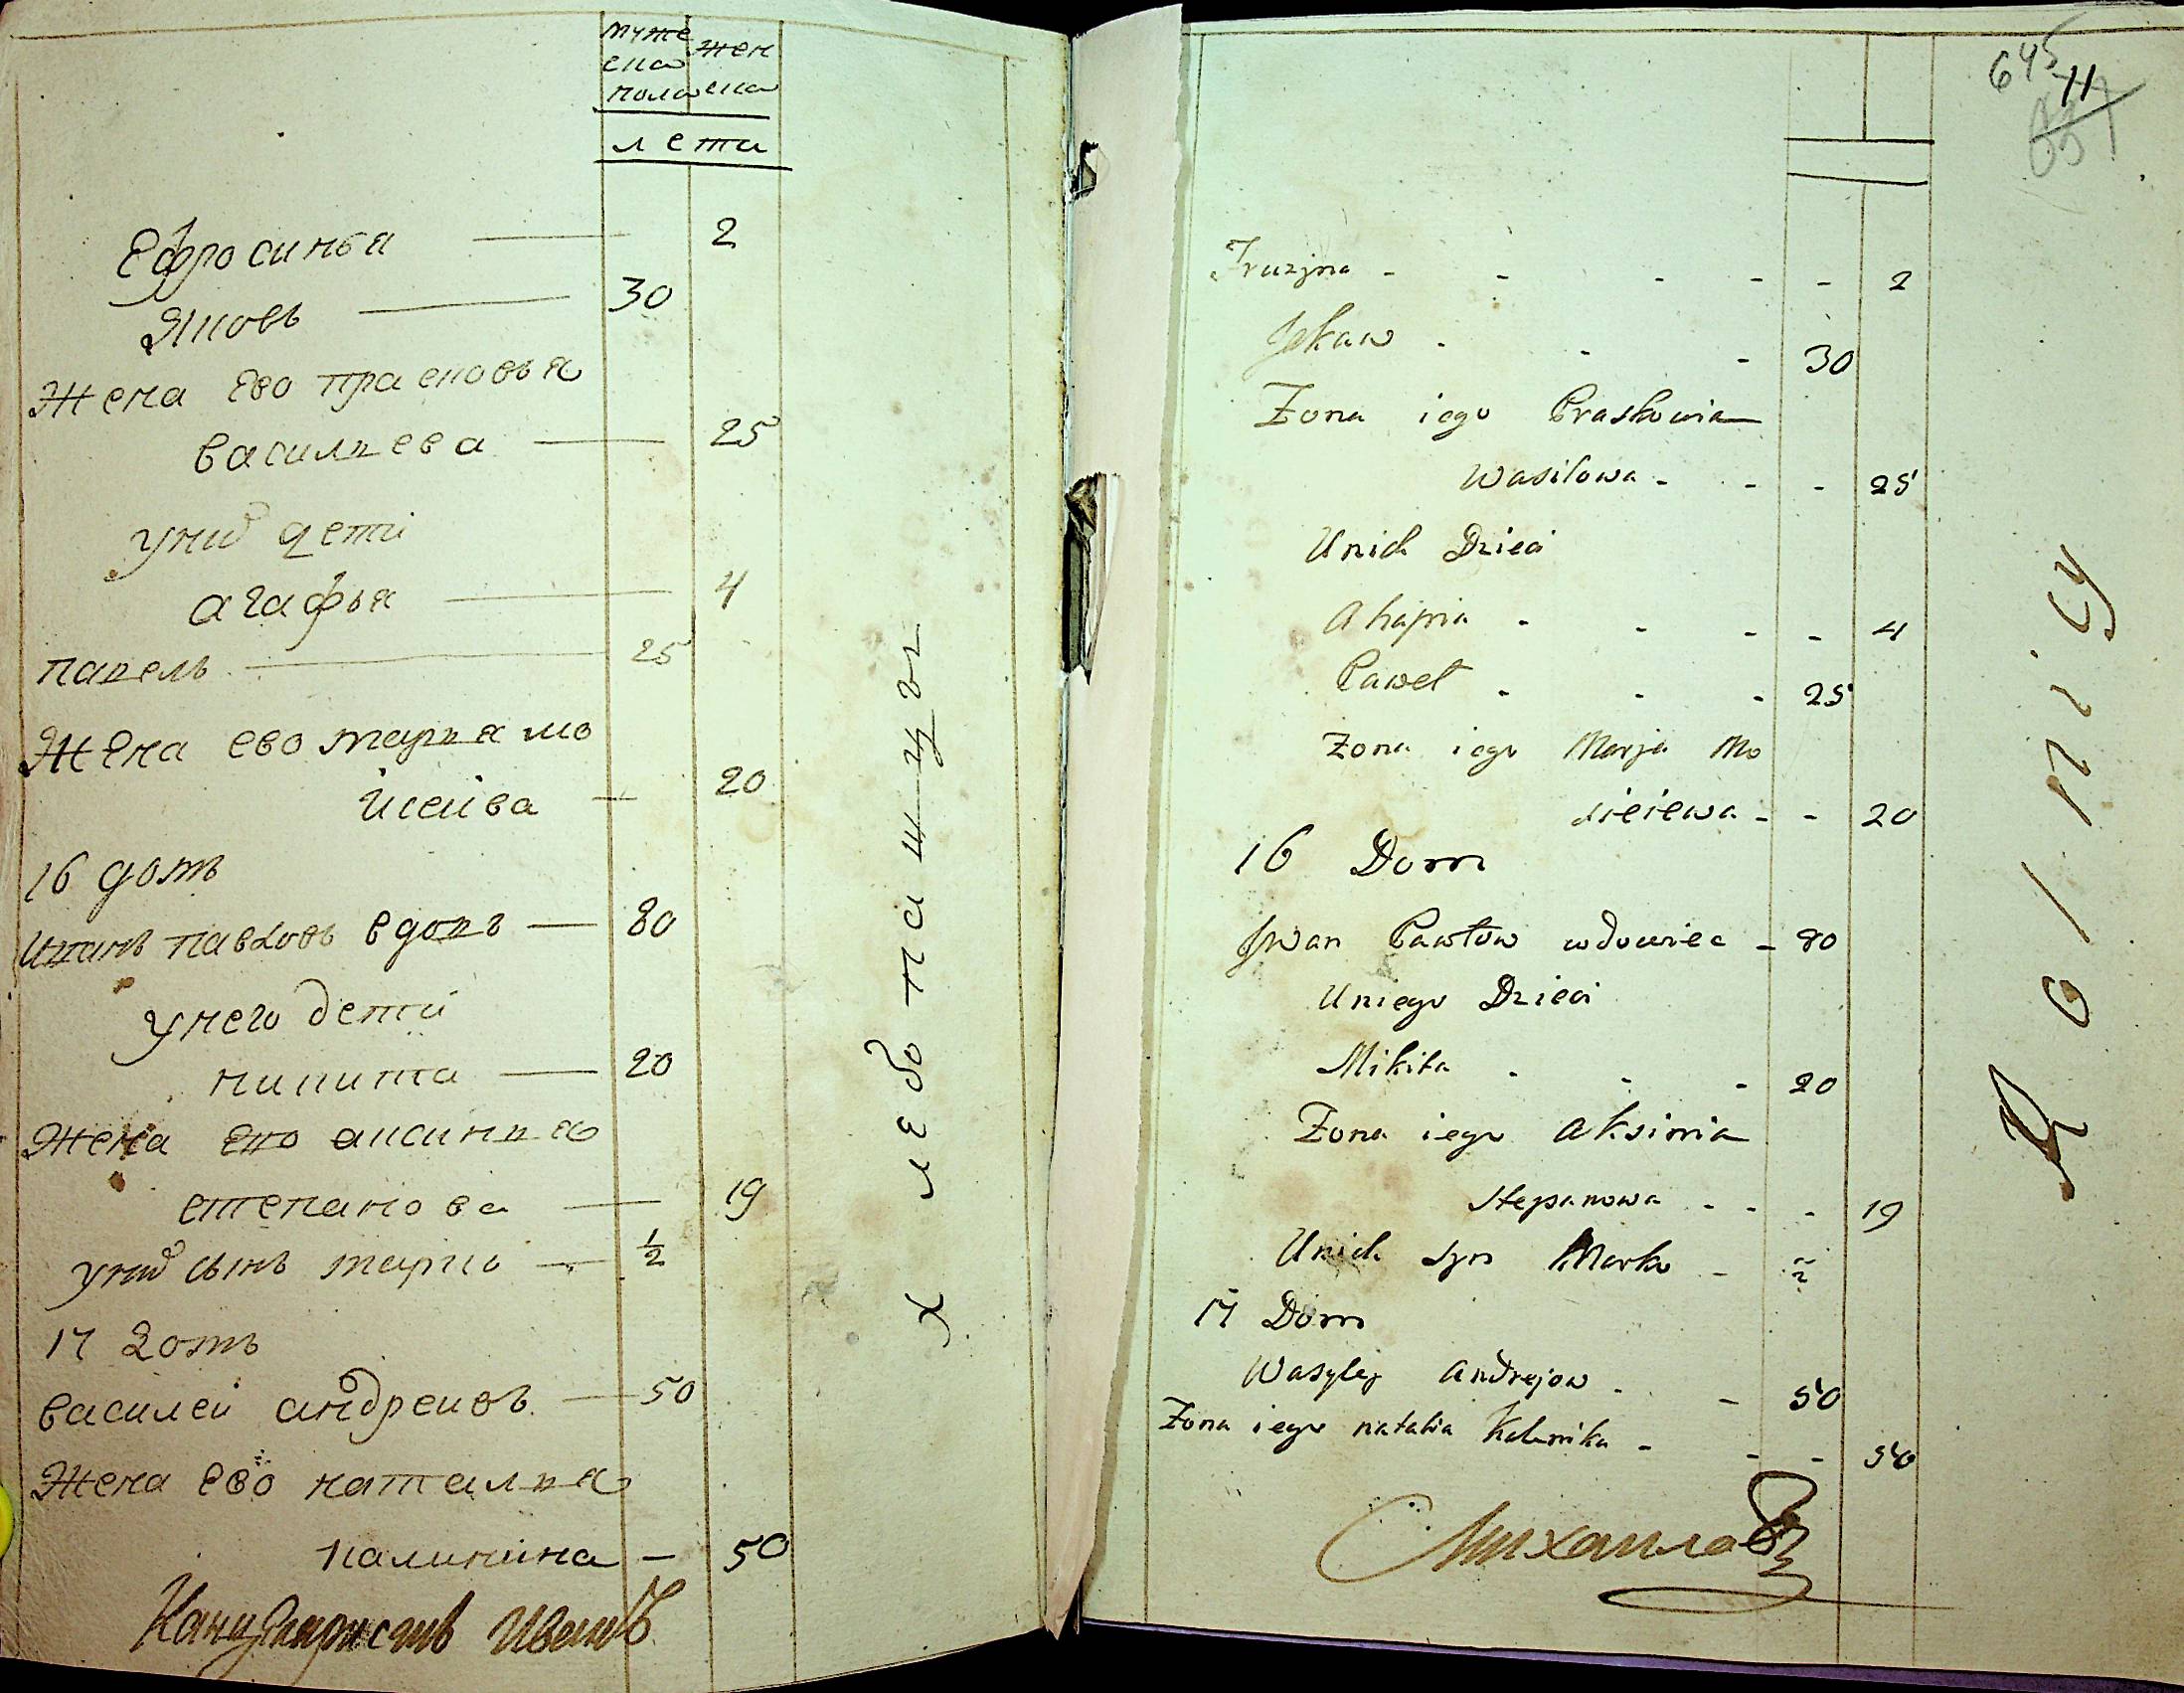 муже жен
ска ска
пола
лета
Ефросинья 2
Яковъ 30
Жена Ево прасковья
васильева 25
уних дети
агафья 4
павель 25
Жена ево марья мо
исеива 20
16 домъ
Иванъ павловъ вдовъ 80
унего дети
никита 20
Жена ево аксинья
степанова 19
уних сынъ марко 1/2
17 домъ
василей андреивъ 50
Жена ево наталья
калинина 50
хлебопашцы
645
11
Fruzjna - - - - - 2
Jakaw - - - 30
Zona iego Praskowia
Wasilowa - - - 25
Unich Dzieci
Ahapia - - - - 4
Paweł - - - 25
Zona iego Marja Mo
sieiewa - - 20
16 Dom
Jwan Pawłow wdowiec - 80
Uniego Dzieci
Mikita - - - 20
Zona iego Aksinia
Stepanowa - - - 19
Unich Syn Marko - 1/2
17 Dom
Wasylej Andrejow - - 50
Zona iego natalia Kalinika - - - 50
Михаилов
Rolnicy